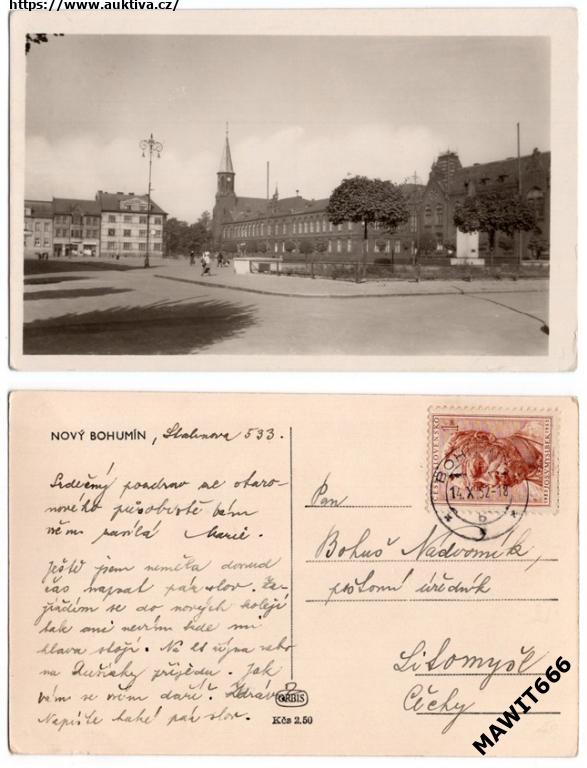 https://www.auktiva.cz/
NOVÝ BOHUMÍN, Stalinova 533.
Srdečný pozdrav ze staro-
nového působiště Vám
všem posílá Marie.
Ještě jsem neměla dosud
čas napsat pár slov. Za-
jíždím se do nových kolejí
tak ani nevím kde mi
hlava stojí. Na 28 října nebo
na Dušičky přijedu. Jak
Vám se všem daří. Zdráv
Napište také pár slov.
ORBIS
Kčs 2.50
ČESKOSLOVENSKO
JOS. V. MYSLBEK
14.X.52-18
b
Pan
Bohuš Nádvorník,
poštovní úředník
Litomyšl
Čechy
MAWIT666